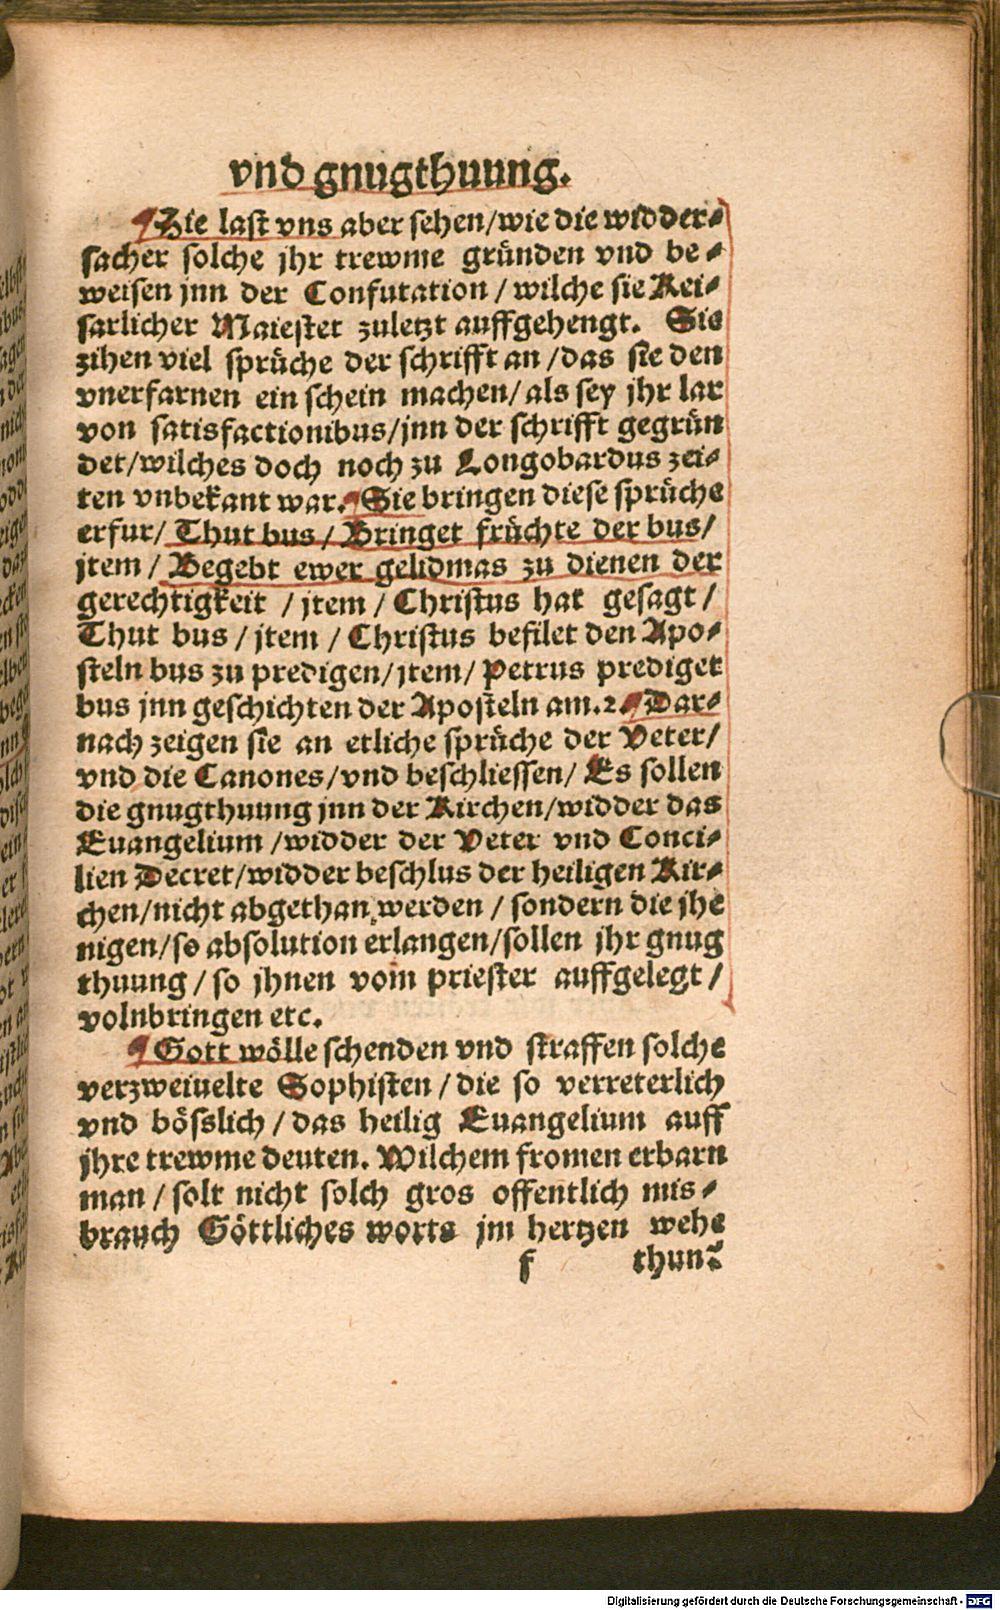 vnd gnugthuung.
Hie last vns aber sehen/wie die widder⸗
sacher solche jhr trewme gründen vnd be⸗
weisen jnn der Confutation / wilche sie Kei⸗
sarlicher Maiestet zuletzt auffgehengt. Sie
zihen viel sprüche der schrifft an /das sie den
vnerfarnen ein schein machen/ als sey jhr lar
von satisfactionibus/jnn der schrifft gegrün
det/wilches doch noch zu Longobardus zei⸗
ten vnbekant war. Sie bringen diese sprüche
erfur/ Thut bus/ Bringet früchte der bus/
jtem / Begebt ewer gelidmas zu dienen der
gerechtigkeit /jtem / Christus hat gesagt/
Thut bus /jtem / Christus befilet den Apo⸗
steln bus zu predigen/jtem/ Petrus prediget
bus jnn geschichten der Aposteln am.2. Dar⸗
nach zeigen sie an etliche sprüche der Veter/
vnd die Canones/vnd beschliessen/ Es sollen
die gnugthuung jnn der Kirchen/widder das
Euangelium /widder der Veter vnd Conci⸗
lien Decret/widder beschlus der heiligen Kir⸗
chen/nicht abgethan werden / sondern die jhe
nigen/so absolution erlangen/sollen jhr gnug
thuung / so jhnen vom priester auffgelegt/
volnbringen etc.
Gott wölle schenden vnd straffen solche
verzweiuelte Sophisten /die so verreterlich
vnd bösslich / das heilig Euangelium auff
jhre trewme deuten. Wilchem fromen erbarn
man / solt nicht solch gros offentlich mis⸗
brauch Göttliches worts jm hertzen wehe
f thun?
Digitalisierung gefördert durch die Deutsche Forschungsgemeinschaft - DFG